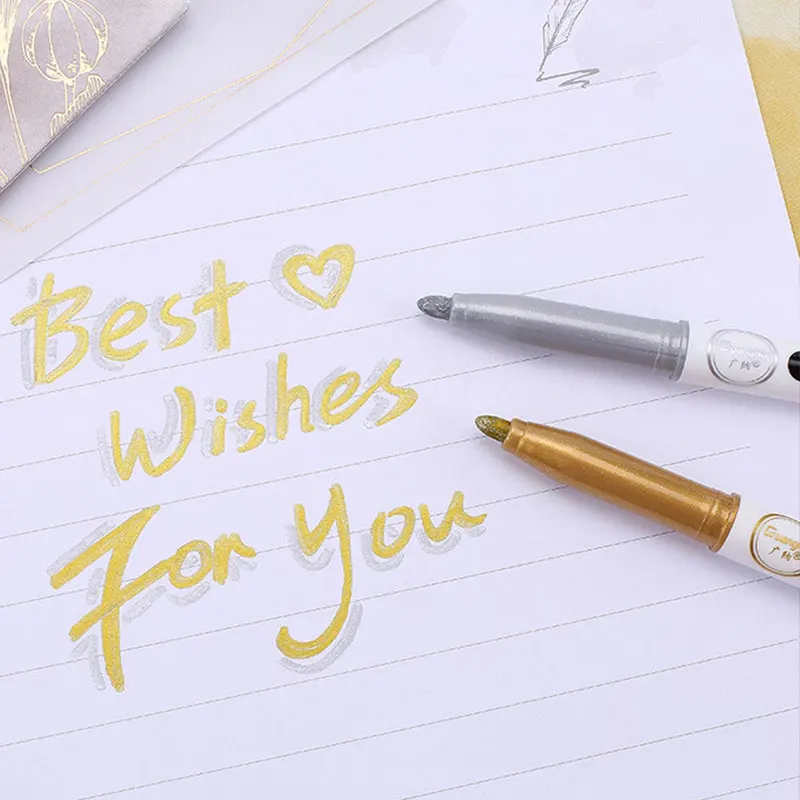 Best
Wishes
For You
Guangna
广纳®
Guangna
广纳®